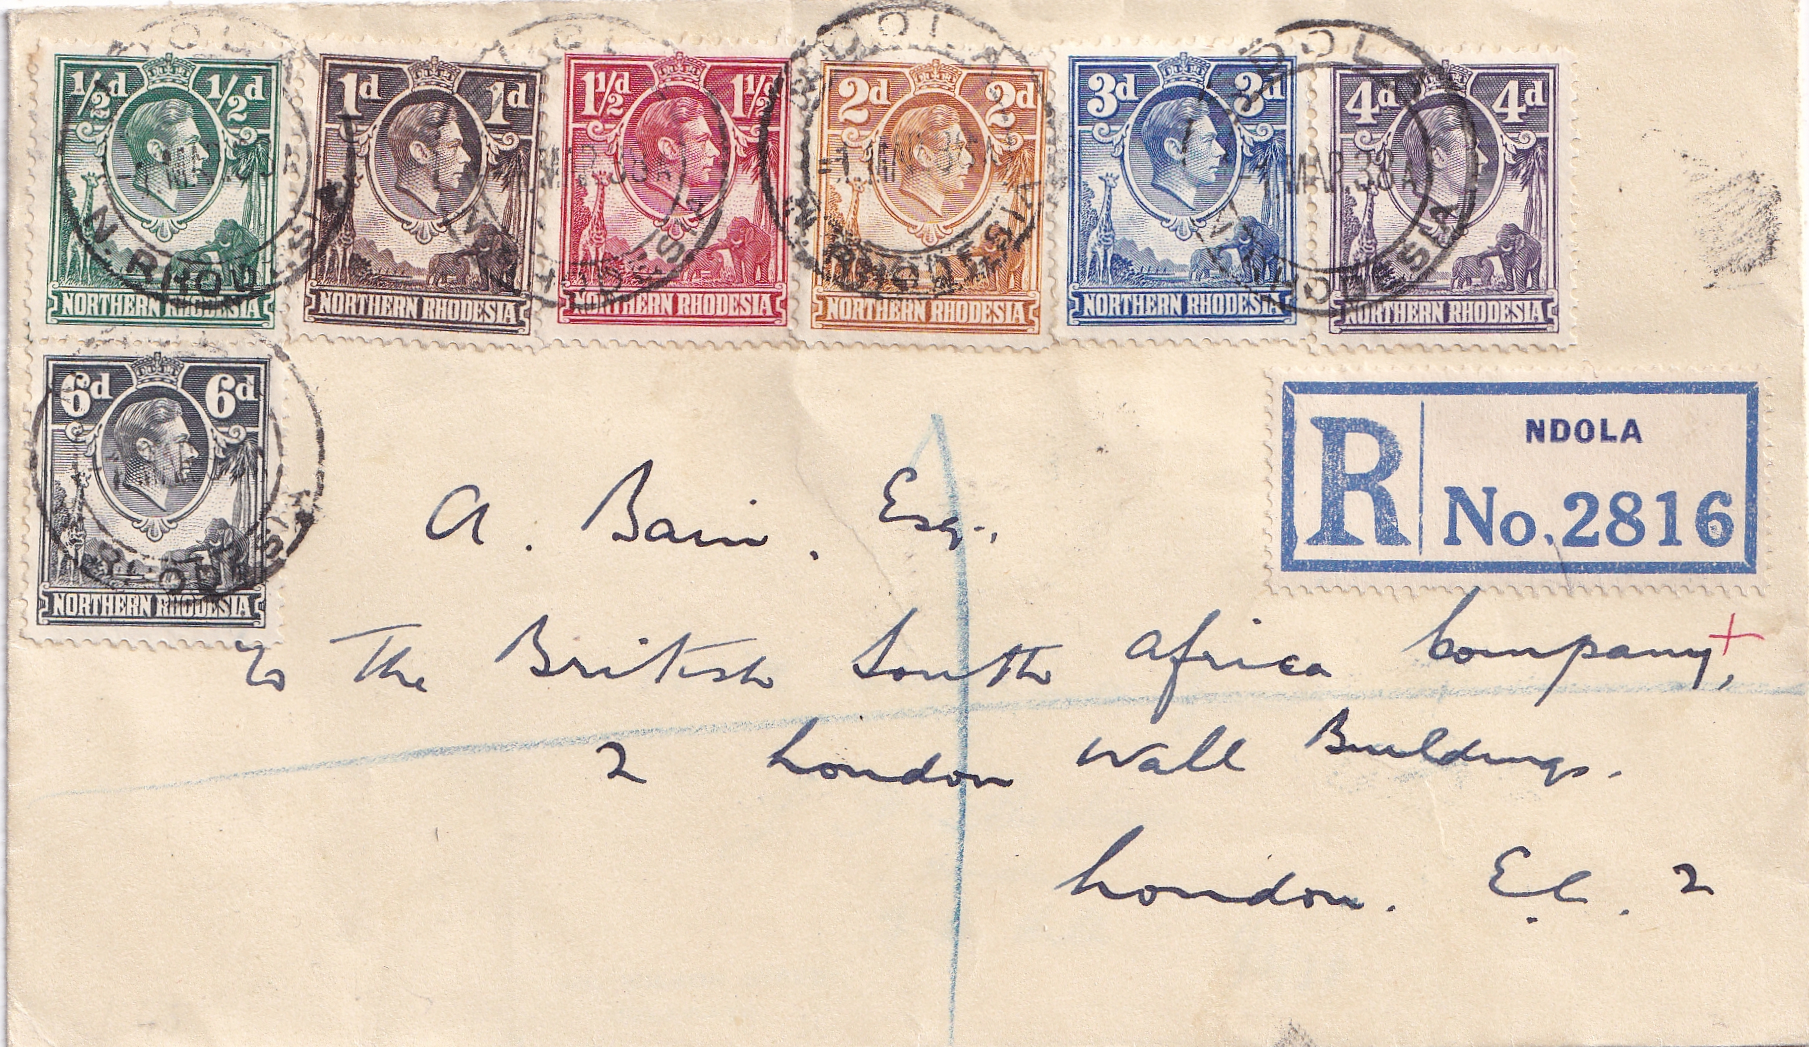 ½d ½d
NORTHERN RHODESIA
1d 1d
NORTHERN RHODESIA
1½d 1½d
NORTHERN RHODESIA
2d 2d
NORTHERN RHODESIA
3d 3d
NORTHERN RHODESIA
4d 4d
NORTHERN RHODESIA
6d 6d
NORTHERN RHODESIA
NDOLA
MAR 38
N. RHODESIA
R
NDOLA
No. 2816
A. Bain, Esq.
The British South Africa Company,
2 London Wall Buildings.
London. E.C. 2